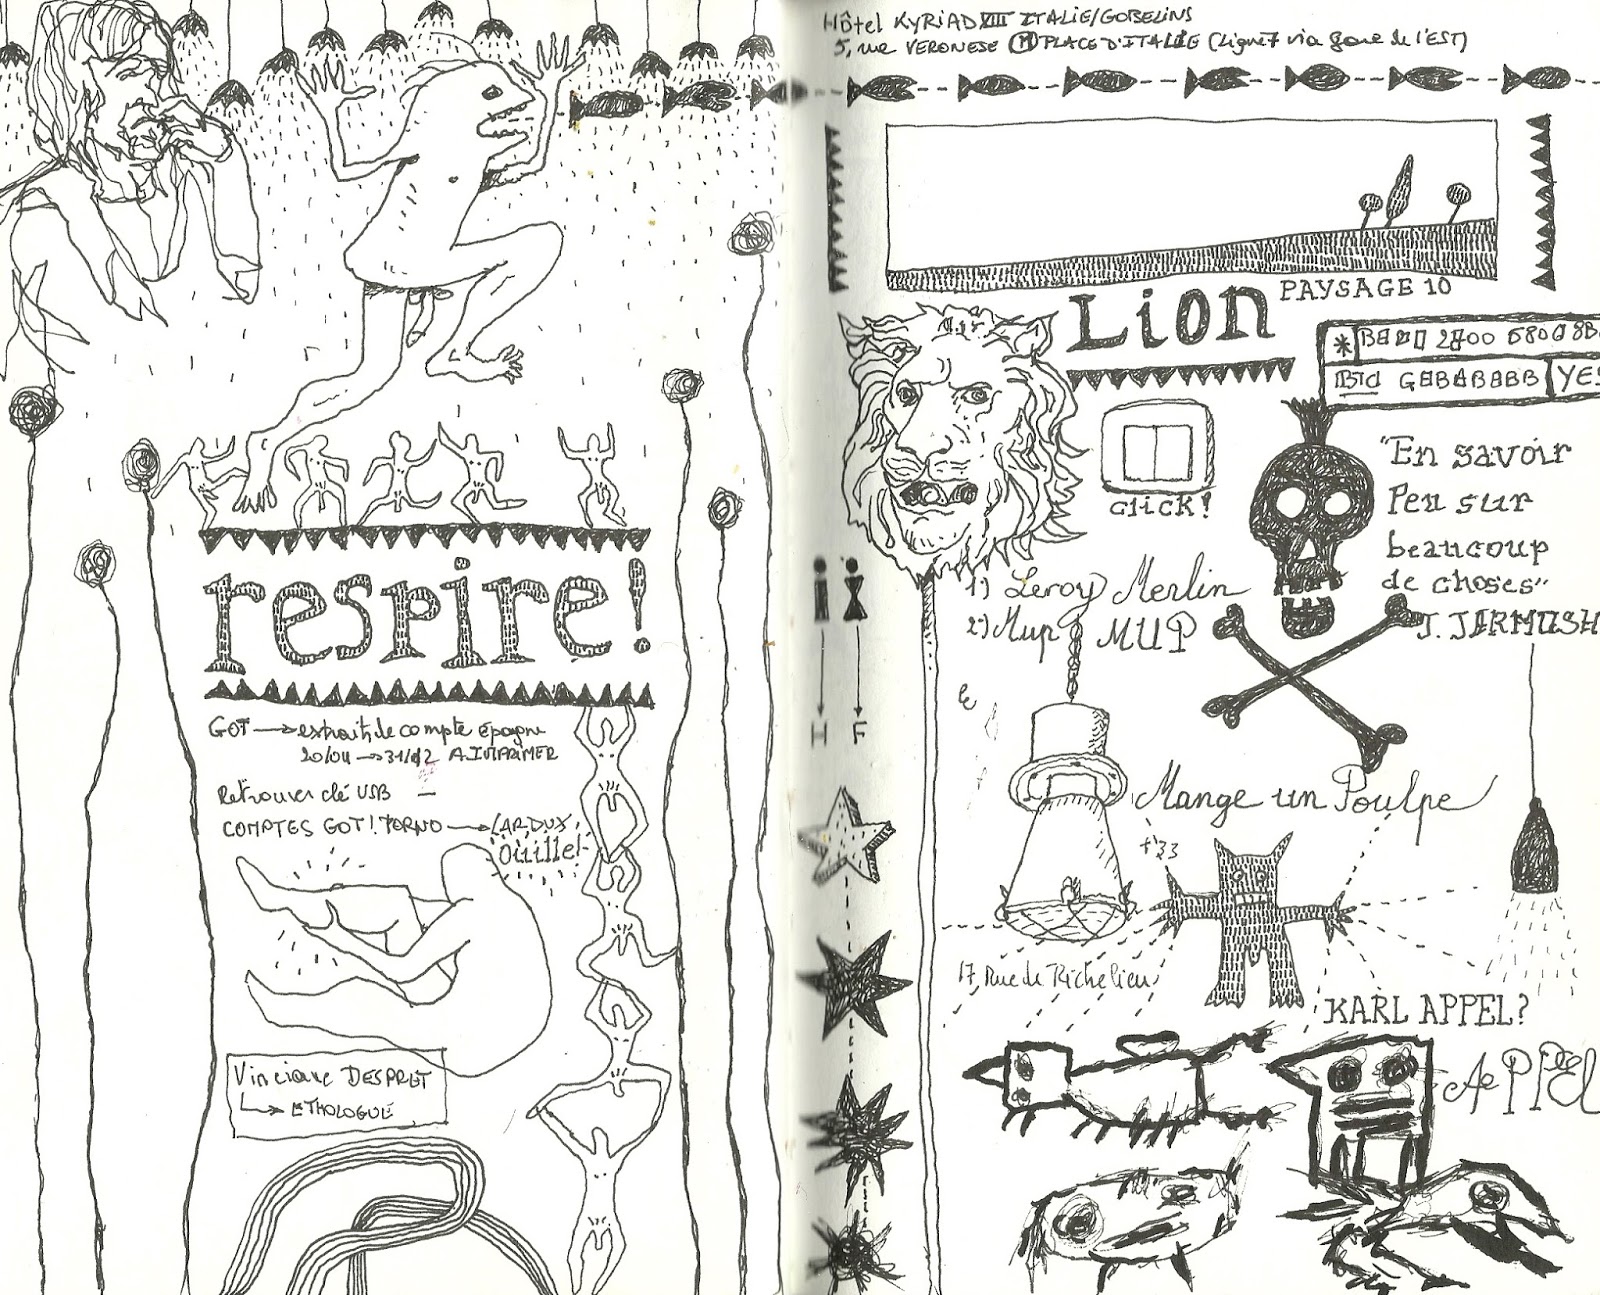 respire!
GOT → extraits de compte épargne
20/04 → 31/12 A IMPRIMER
Retrouver clé USB
COMPTES GOT! PORNO → LARDUX
Ouille!
Vinciane DESPRET
ETHOLOGUE
Hôtel KYRIAD XIII ITALIE/GOBELINS
5, rue VERONESE M PLACE D'ITALIE (Ligne 7 via gare de l'EST)
PAYSAGE 10
Lion
BIC GEBABEBB YES
CLICK!
"En savoir
Peu sur
beaucoup
de choses"
J. JARMUSH
1) Leroy Merlin
2) Mup MUP
H F
Mange un Poulpe
17, Rue de Richelieu
KARL APPEL?
APPEL